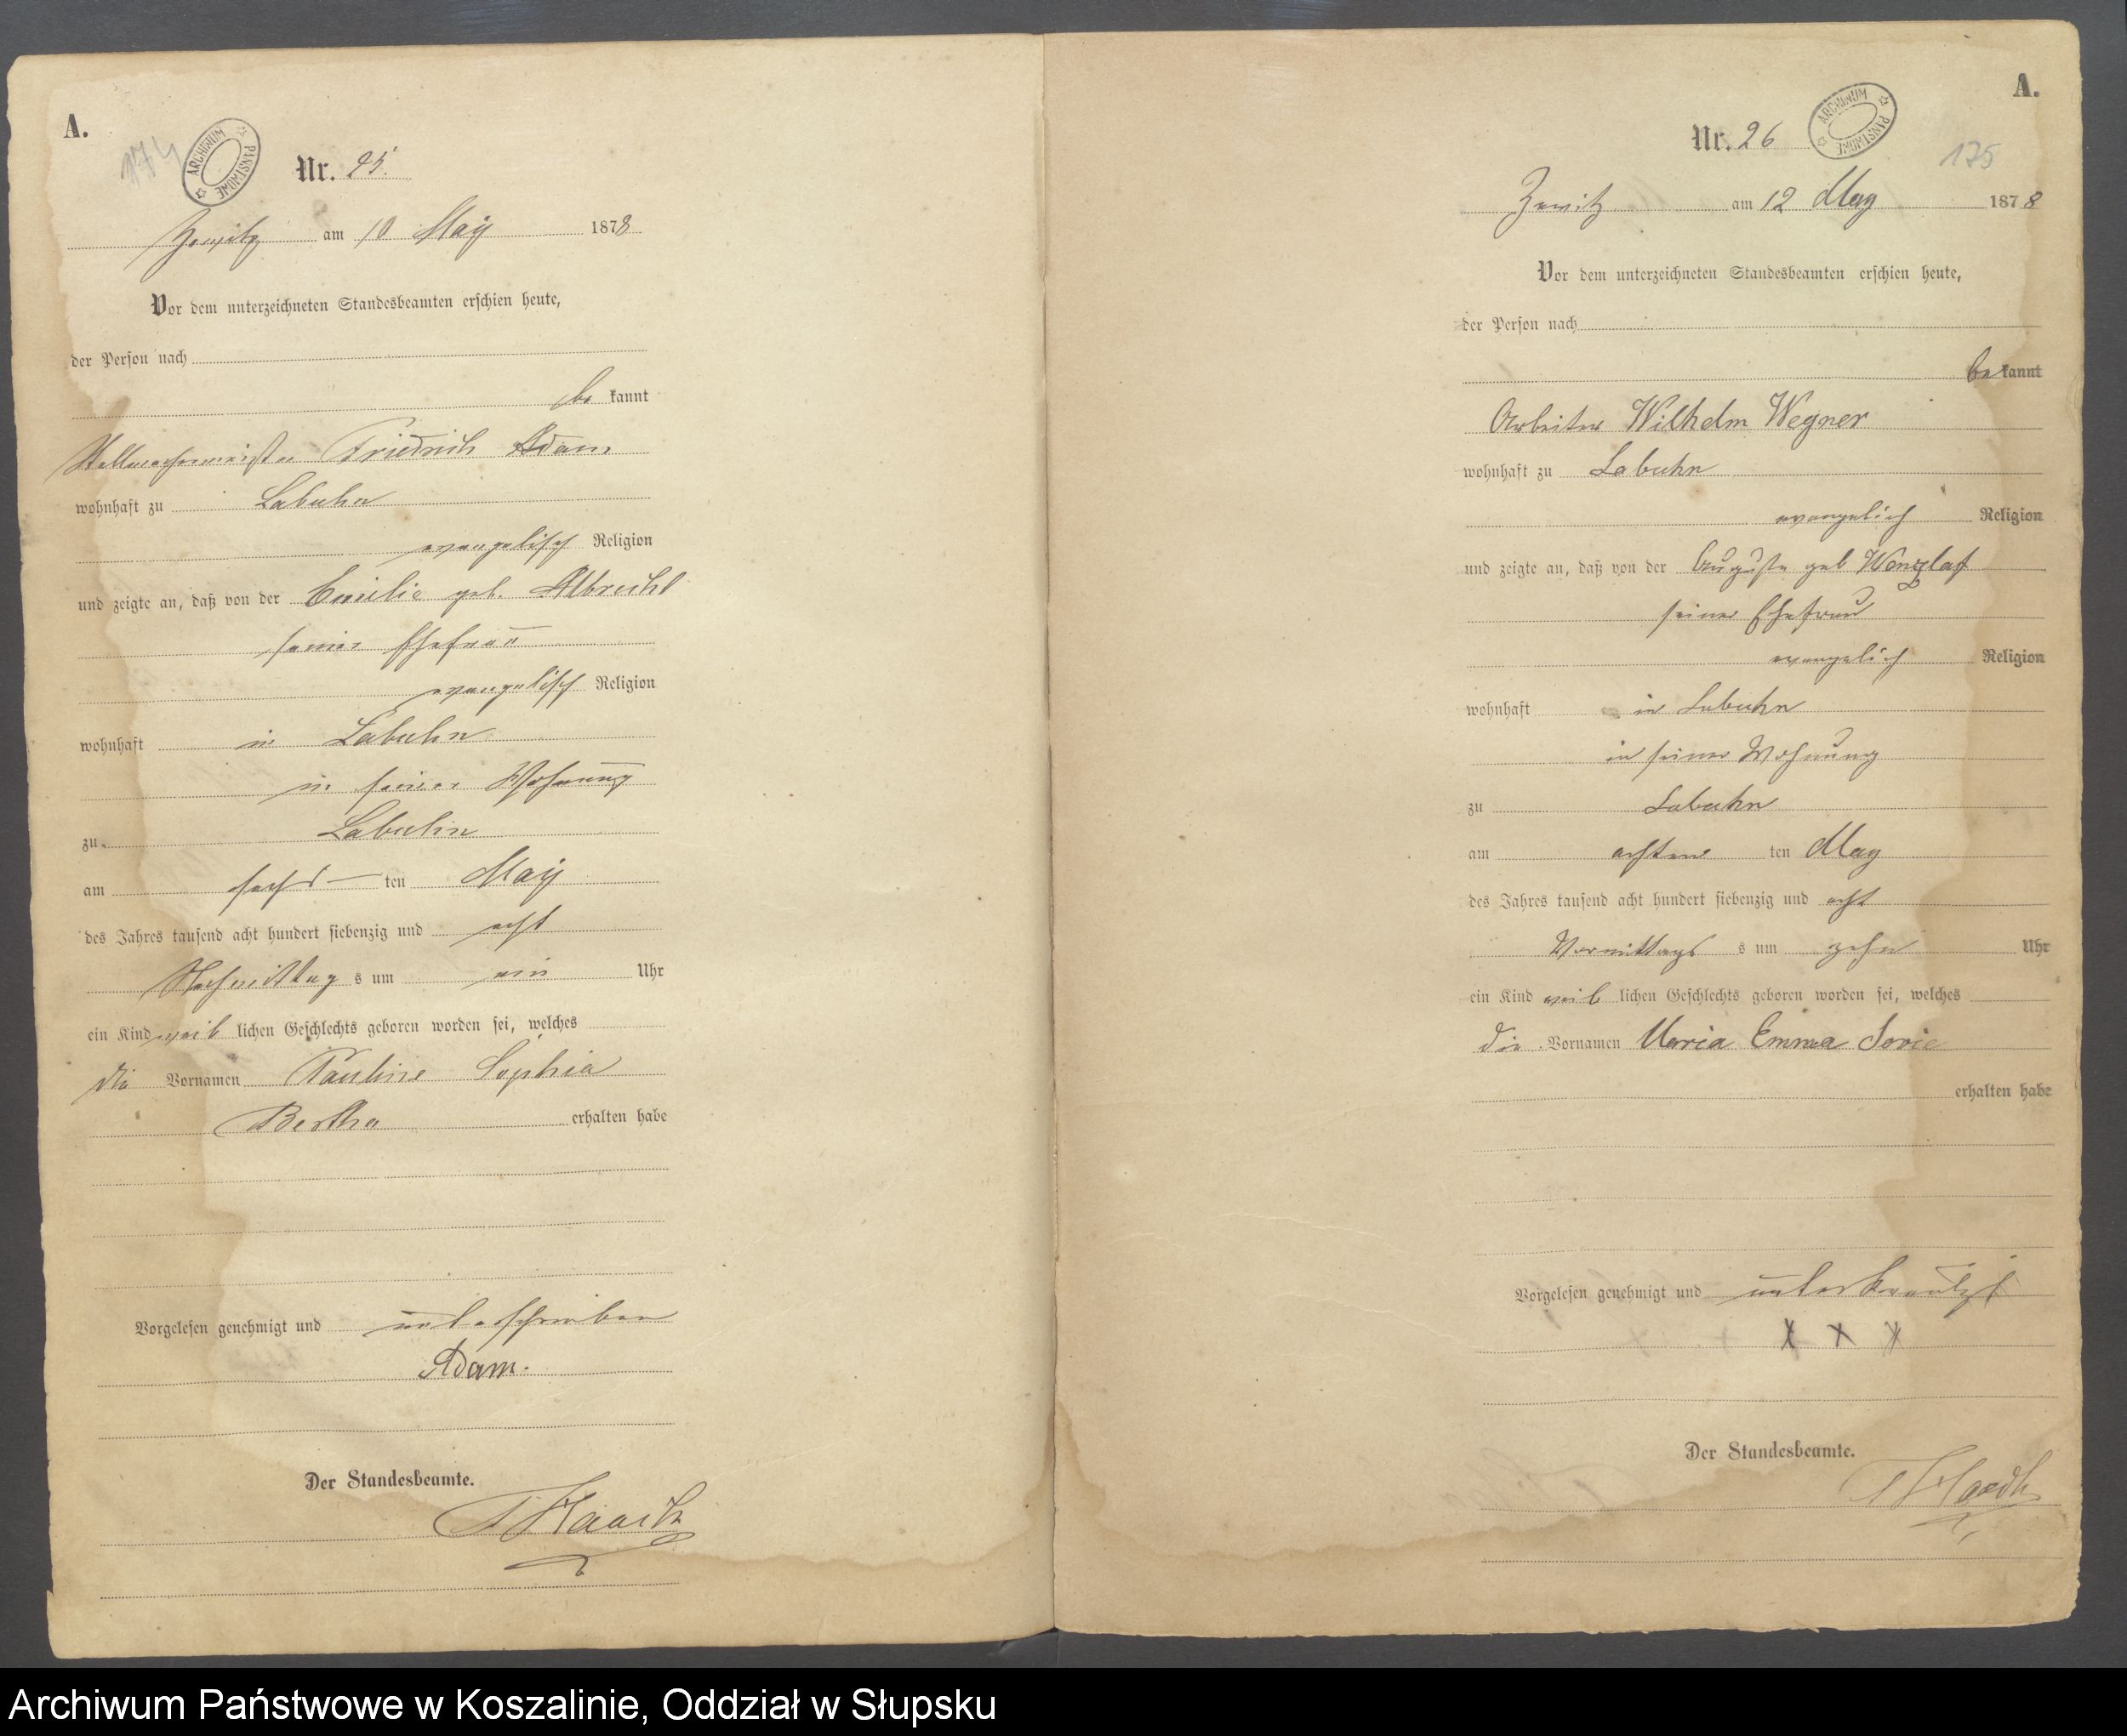 A.
174
ARCHIWUM PAŃSTWOWE
Nr. 25.
Zewitz am 10 May 1878
Vor dem unterzeichneten Standesbeamten erschien heute,
der Person nach
be kannt
Stellmachermeister Friedrich Adam
wohnhaft zu Labuhn
evangelisch Religion
und zeigte an, daß von der Emilie geb. Albrecht
seiner Ehefrau
evangelisch Religion
wohnhaft in Labuhn
in seiner Wohnung
zu Labuhn
am sechs ten May
des Jahres tausend acht hundert siebenzig und acht
Nachmittag s um ein Uhr
ein Kind weib lichen Geschlechts geboren worden sei, welches
die Vornamen Pauline Sophia
Bertha erhalten habe
Vorgelesen genehmigt und unterschrieben
Adam.
Der Standesbeamte.
A.
Nr. 26
ARCHIWUM PAŃSTWOWE
175
Zewitz am 12 May 1878
Vor dem unterzeichneten Standesbeamten erschien heute,
der Person nach
be kannt
Arbeiter Wilhelm Wegner
wohnhaft zu Labuhn
evangelisch Religion
und zeigte an, daß von der Auguste geb Wenzlaf
seiner Ehefrau
evangelisch Religion
wohnhaft in Labuhn
in seiner Wohnung
zu Labuhn
am achten ten May
des Jahres tausend acht hundert siebenzig und acht
Vormittags s um zehn Uhr
ein Kind weib lichen Geschlechts geboren worden sei, welches
die Vornamen Maria Emma
erhalten habe
Vorgelesen genehmigt und unterkreutzt
X X X
Der Standesbeamte.
Archiwum Państwowe w Koszalinie, Oddział w Słupsku